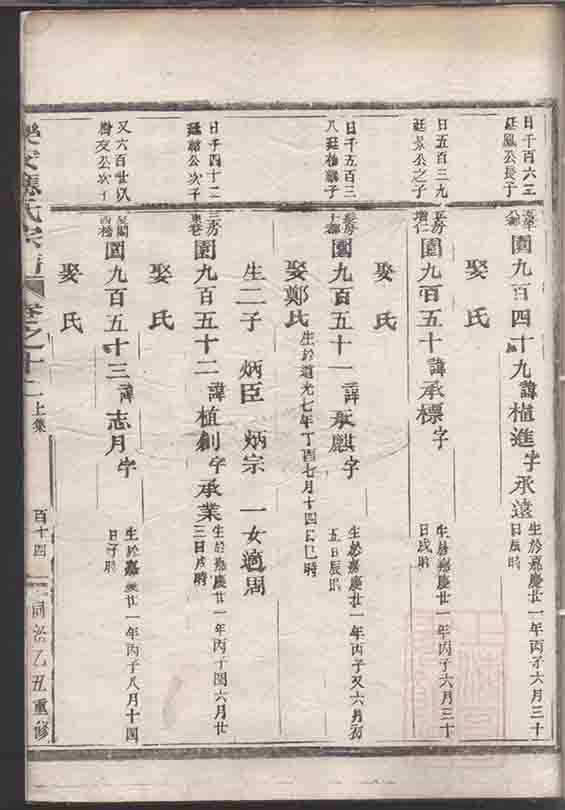 日千百六三
廷鳳公長子
園九百四十九諱植進字承遠
生於嘉慶廿一年丙子六月三十
日辰時
娶氏
日五百三九
之子
園九百五十諱承標字
生於嘉慶廿一年丙子六月三十
日戌時
娶氏
日千五百三
八廷
園九百五十一諱承麒字
生於嘉慶廿一年丙子又六月初
五日辰時
娶鄭氏生於道光七年丁酉七月十四日巳時
生二子 炳臣 炳宗 一女適周
日千四十二
公次子
園九百五十二諱植創字承業
生於嘉慶廿一年丙子閏六月廿
三日戌時
娶氏
又六百廿
公次子
西樓
園九百五十三諱志月字
生於嘉慶廿一年丙子八月十四
日子時
娶氏
氏宗譜 卷之十二上集 百十四 同治乙丑重修